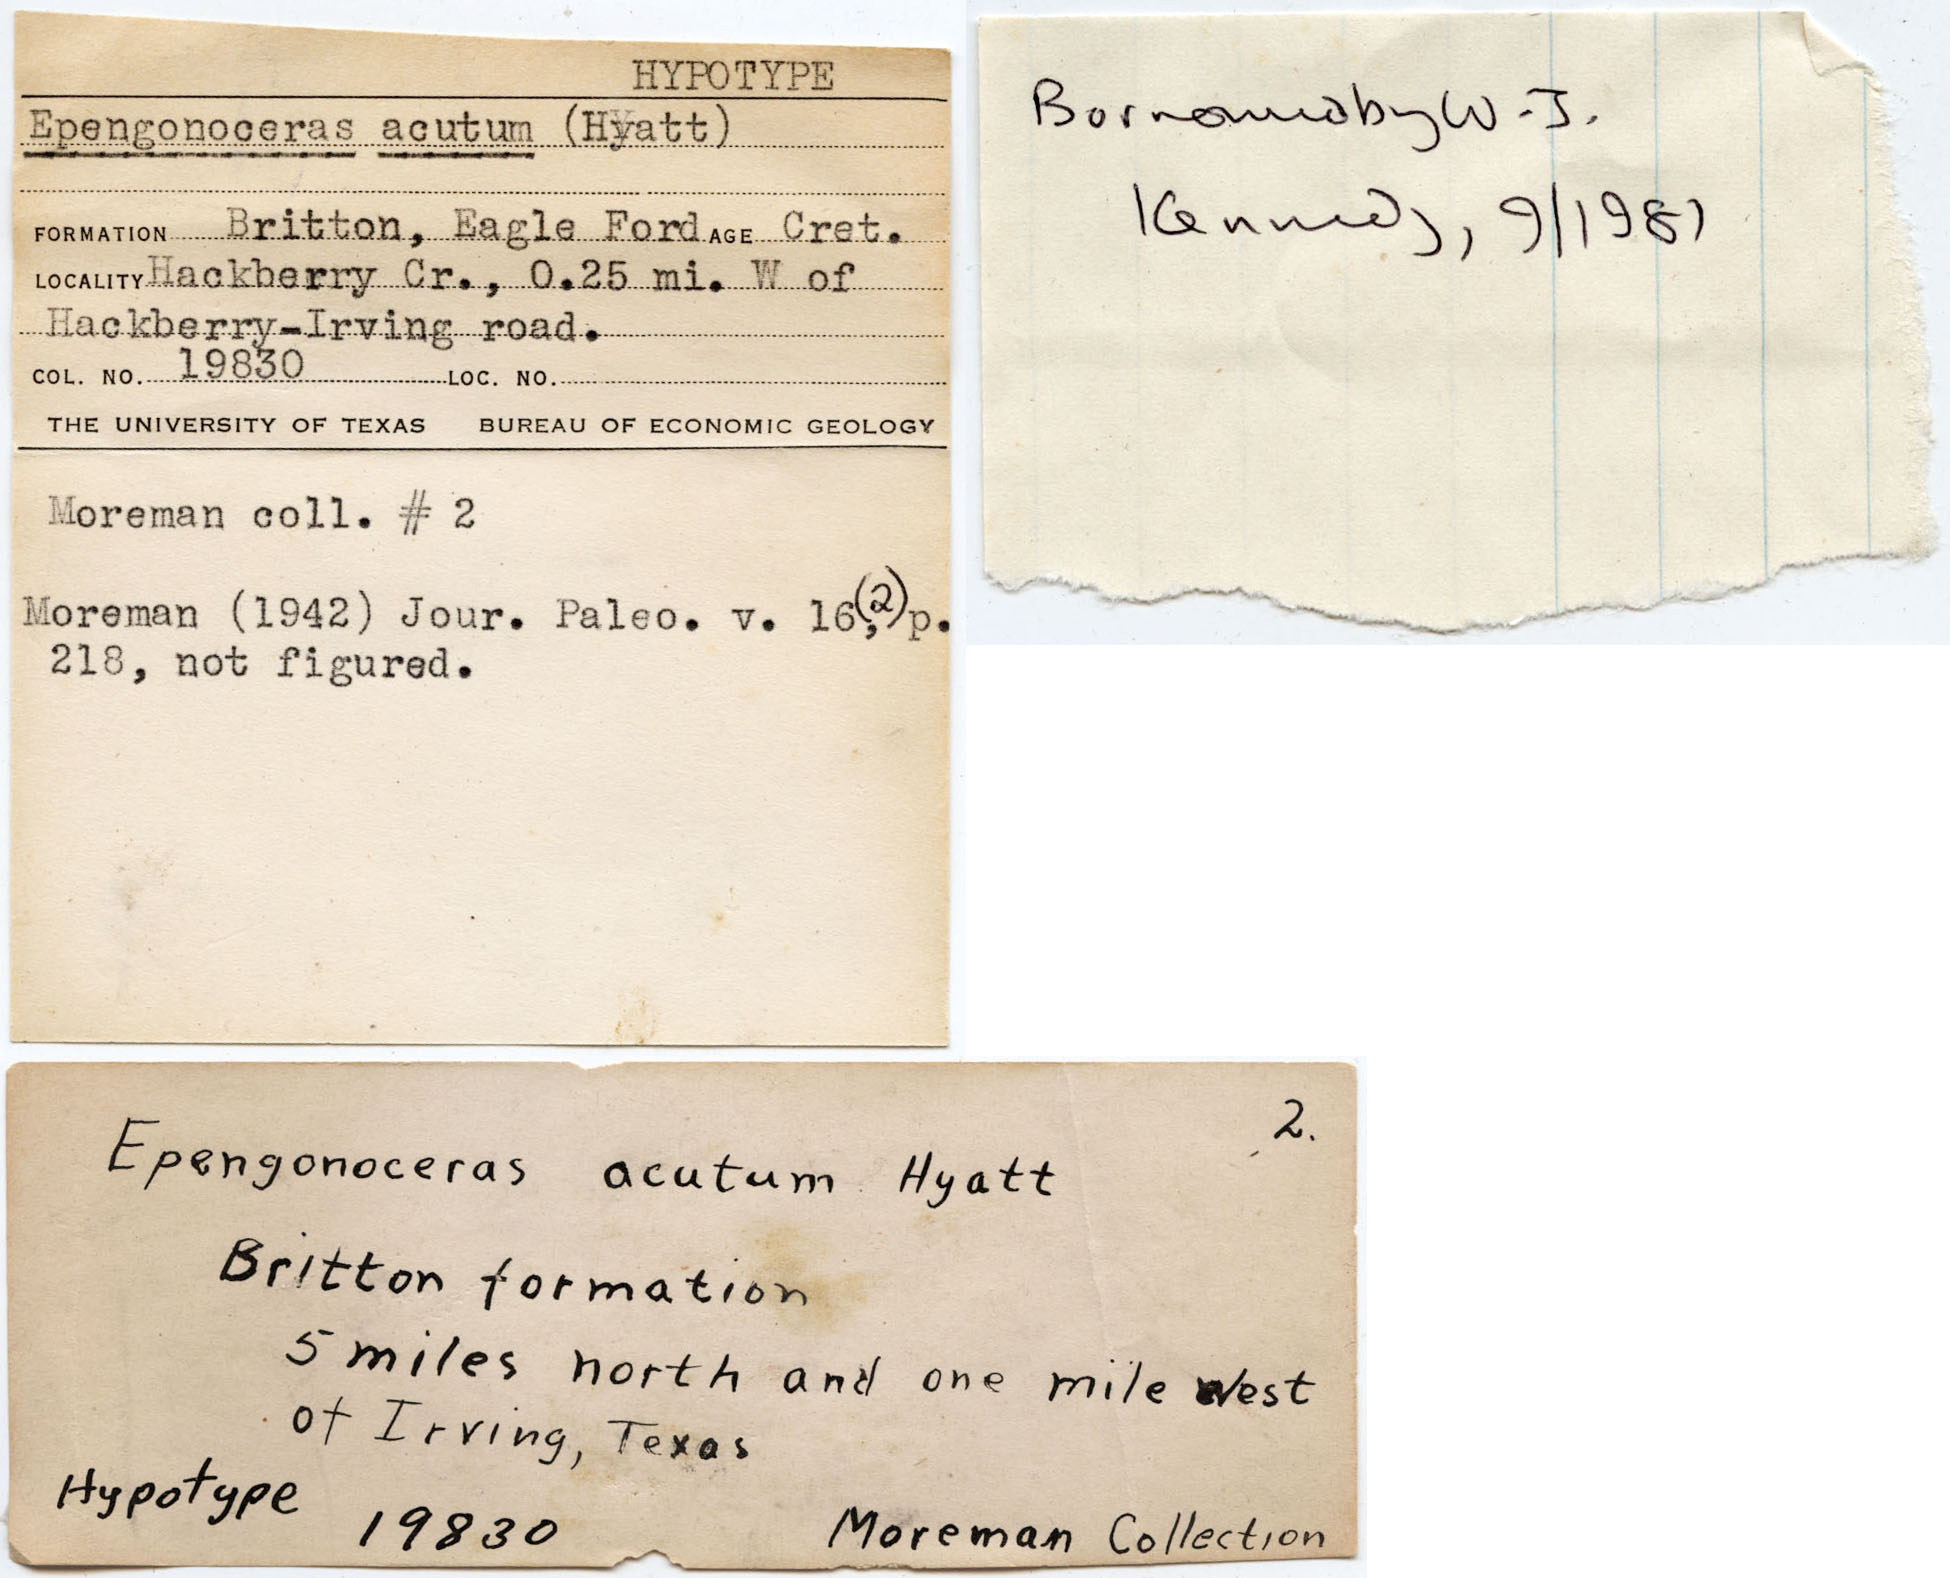 HYPOTYPE
Epengonoceras acutum (Hyatt)
FORMATION Britton, Eagle Ford AGE Cret.
LOCALITY Hackberry Cr., 0.25 mi. W of
Hackberry-Irving road.
COL. NO. 19830 LOC. NO.
THE UNIVERSITY OF TEXAS BUREAU OF ECONOMIC GEOLOGY
Moreman coll. # 2
Moreman (1942) Jour. Paleo. v. 16(2), p.
218, not figured.
by W. J.
Kennedy, 9/1981
2.
Epengonoceras acutum Hyatt
Britton formation
5 miles north and one mile west
of Irving, Texas
Hypotype
19830 Moreman Collection